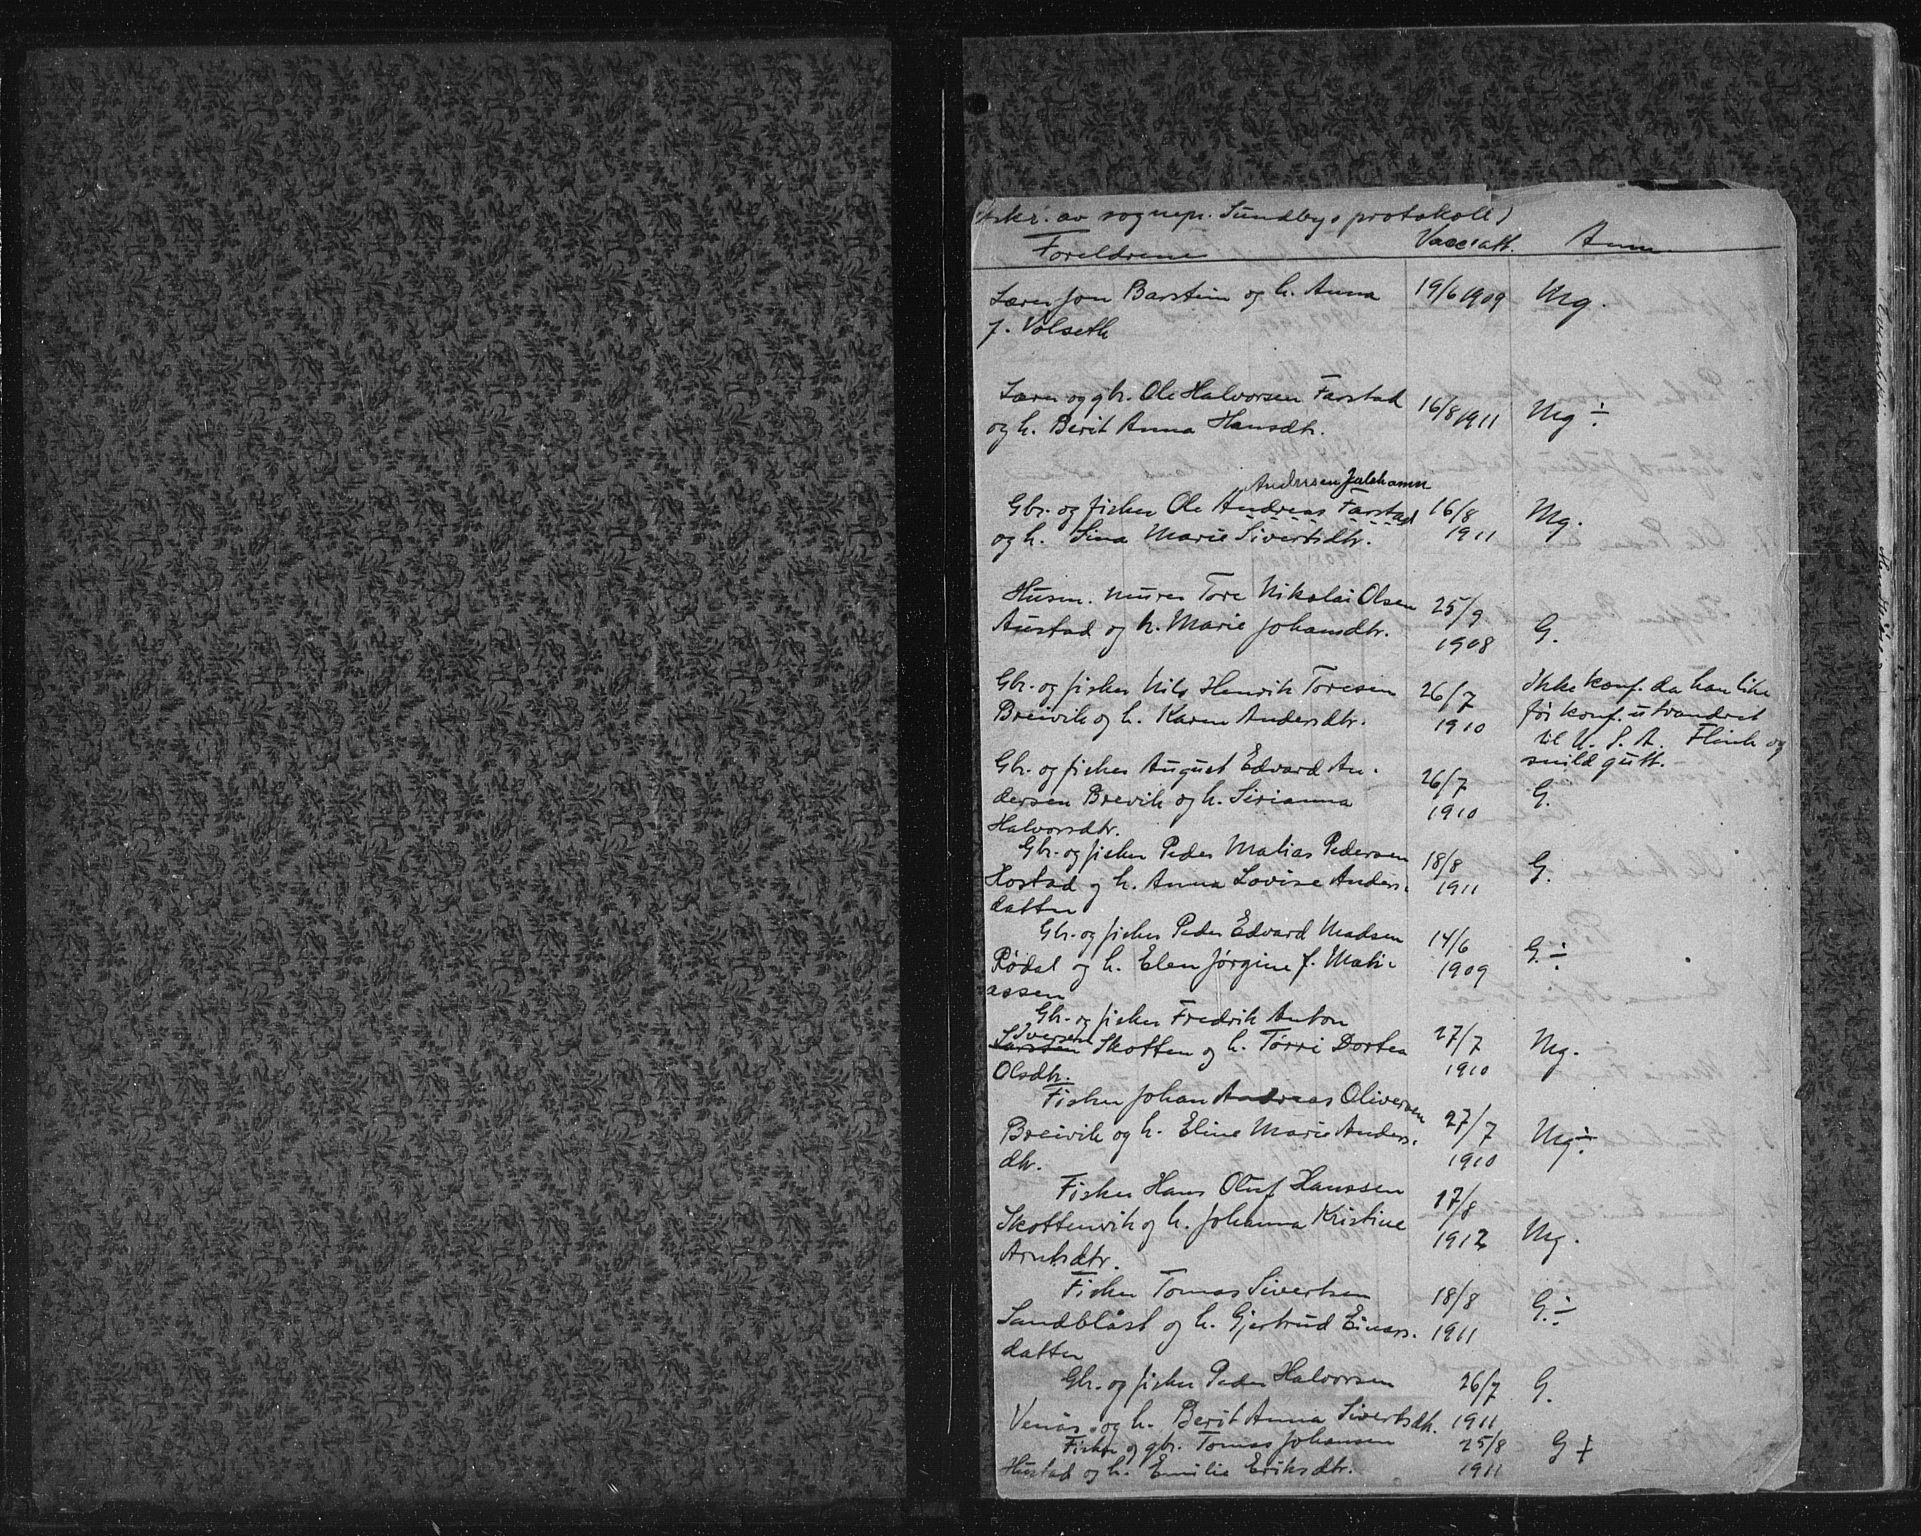 avskr. av sognepr. Sundbys protokoll)
Foreldrene Vacc.att. Anm.
Lærer Jon Barstein og h. Anna 19/6 1909 Mg.
f. Volseth
Lærer og gbr. Ole Halvorsen Farstad 16/8 1911 Mg ÷
og h. Berit Anna Hansdtr.
Andersen Julshamn
Gbr. og fisker Ole Andreas Farstad 16/8 Mg.
og h. Sina Marie Sivertsdtr. 1911
Husm. murer Tore Nikolai Olsen 25/9
Austad og h. Marie Johansdtr. 1908 G.
Gbr. og fisker Nils Henrik Toresen 26/7 Ikke konf. da han like
Breivik og h. Karen Andersdtr. 1910 før konf. utvandret
til U. S. A. Flink og
snild gutt.
Gbr. og fisker August Edvard An- 26/7 G.
dersen Brevik og h. Sirianna 1910
Halvorsdtr.
Gbr. og fisker Peder Matias Pedersen 18/8 G.
Hostad og h. Anna Lovise Anders- 1911
datter
Gbr. og fisker Peder Edvard Madsen 14/6 G. ÷
Rødal og h. Elen Jørgine f. Mati- 1909
assen
Gbr. og fisker Fredrik Anton
Iversen
Larsen Skotten og h. Tørri Dortea 27/7 Mg.
Olsdtr. 1910
Fisker Johan Andreas Oliversen 27/7
Breivik og h. Eline Marie Anders- 1910 Mg ÷
dtr.
Fisker Hans Oluf Hanssen 17/8
Skottenvik og h. Johanna Kristine 1912 Mg.
Arntsdtr.
Fisker Tomas Sivertsen 18/8 G. ÷
Sandblåst og h. Gjertrud Einars- 1911
datter
Gbr. og fisker Peder Halvorsen 26/7 G.
Venås og h. Berit Anna Sivertsdtr. 1911
Fisker og gbr. Tomas Johansen 25/8 G ÷
Hustad og h. Emilie Eriksdtr. 1911